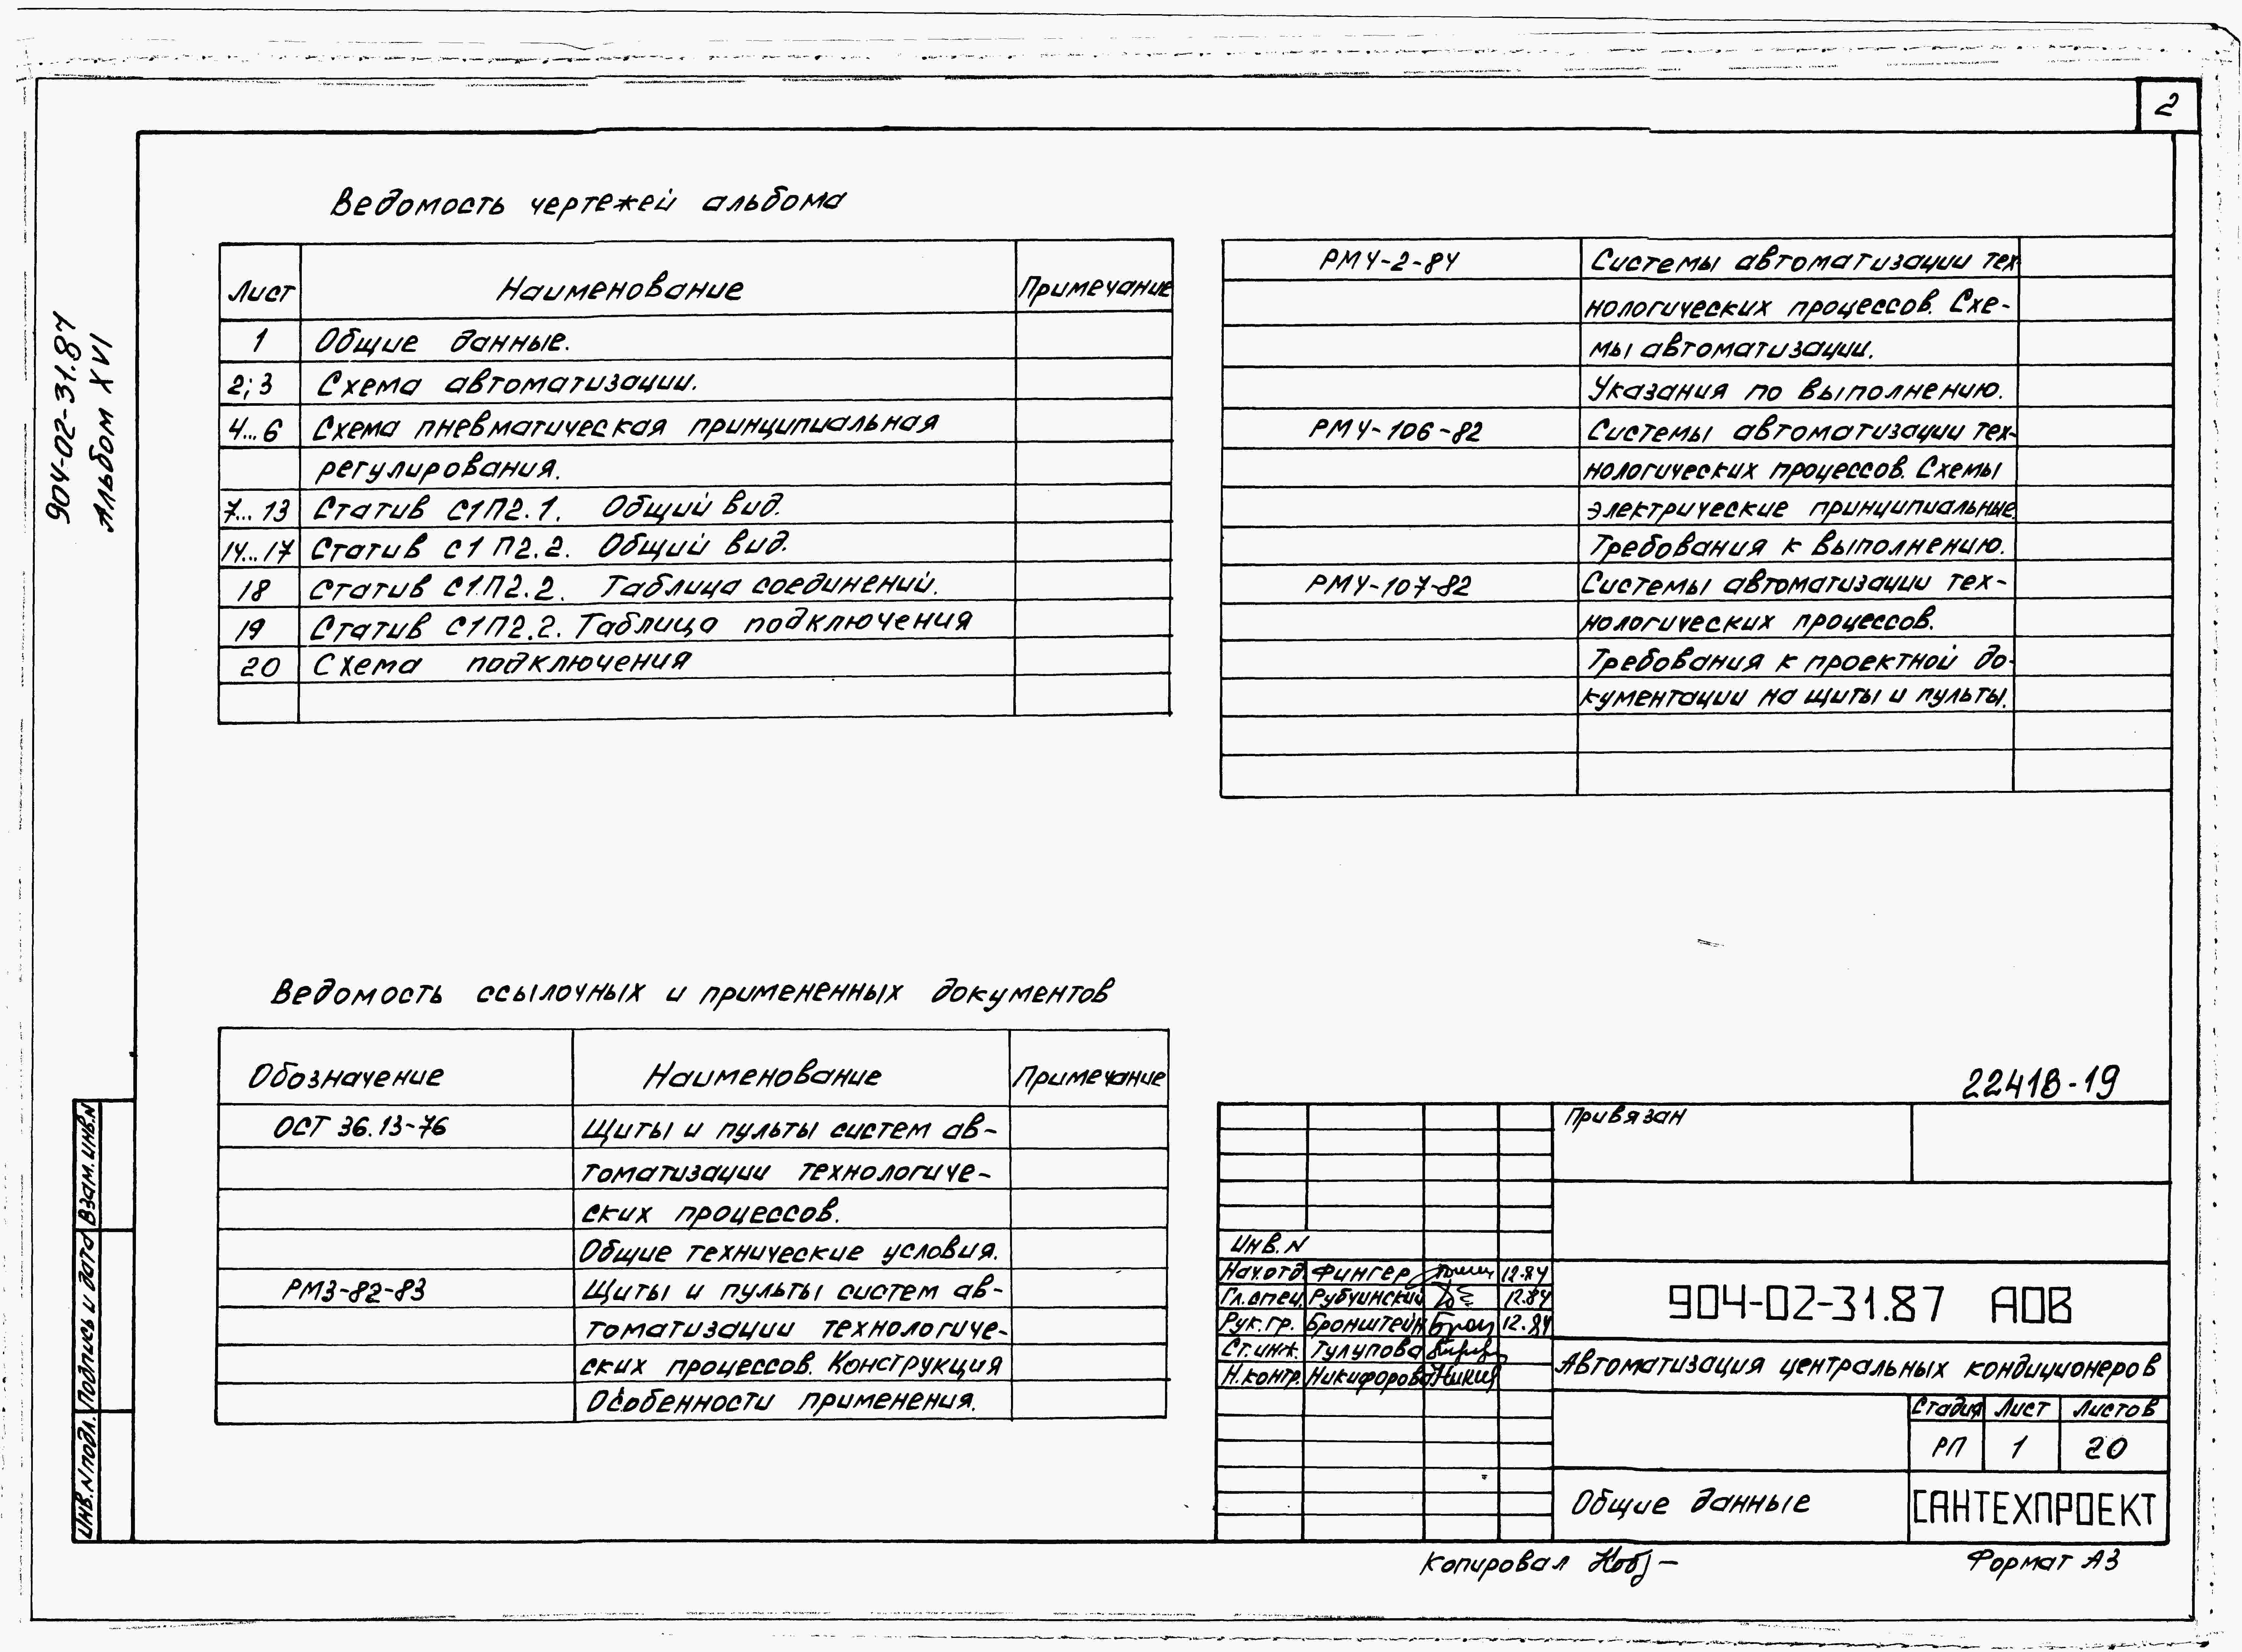 2
904-02-31.87
Альбом XVI
Ведомость чертежей альбома
Лист Наименование Примечание
1 Общие данные.
2;3 Схема автоматизации.
4...6 Схема пневматическая принципиальная
регулирования.
7...13 Статив С1П2.1. Общий вид.
14...17 Статив С1П2.2. Общий вид.
18 Статив С1П2.2. Таблица соединений.
19 Статив С1П2.2. Таблица подключения
20 Схема подключения
РМ4-2-84 Системы автоматизации тех-
нологических процессов. Схе-
мы автоматизации.
Указания по выполнению.
РМ4-106-82 Системы автоматизации тех-
нологических процессов. Схемы
электрические принципиальные.
Требования к выполнению.
РМ4-107-82 Системы автоматизации тех-
нологических процессов.
Требования к проектной до-
кументации на щиты и пульты.
Ведомость ссылочных и примененных документов
Обозначение Наименование Примечание
ОСТ 36.13-76 Щиты и пульты систем ав-
томатизации технологиче-
ских процессов.
Общие технические условия.
РМ3-82-83 Щиты и пульты систем ав-
томатизации технологиче-
ских процессов. Конструкция
Особенности применения.
Взам. инв. N
Подпись и дата
Инв. N подл.
22418-19
Привязан
Инв. N
Нач. отд. Фингер 12.84
Гл. спец. Рубчинский 12.84
Рук. гр. Бронштейн 12.84
Ст. инж. Тулупова
Н. контр. Никифорова
904-02-31.87 АОВ
Автоматизация центральных кондиционеров
Стадия Лист Листов
РП 1 20
Общие данные
САНТЕХПРОЕКТ
Копировал
Формат А3